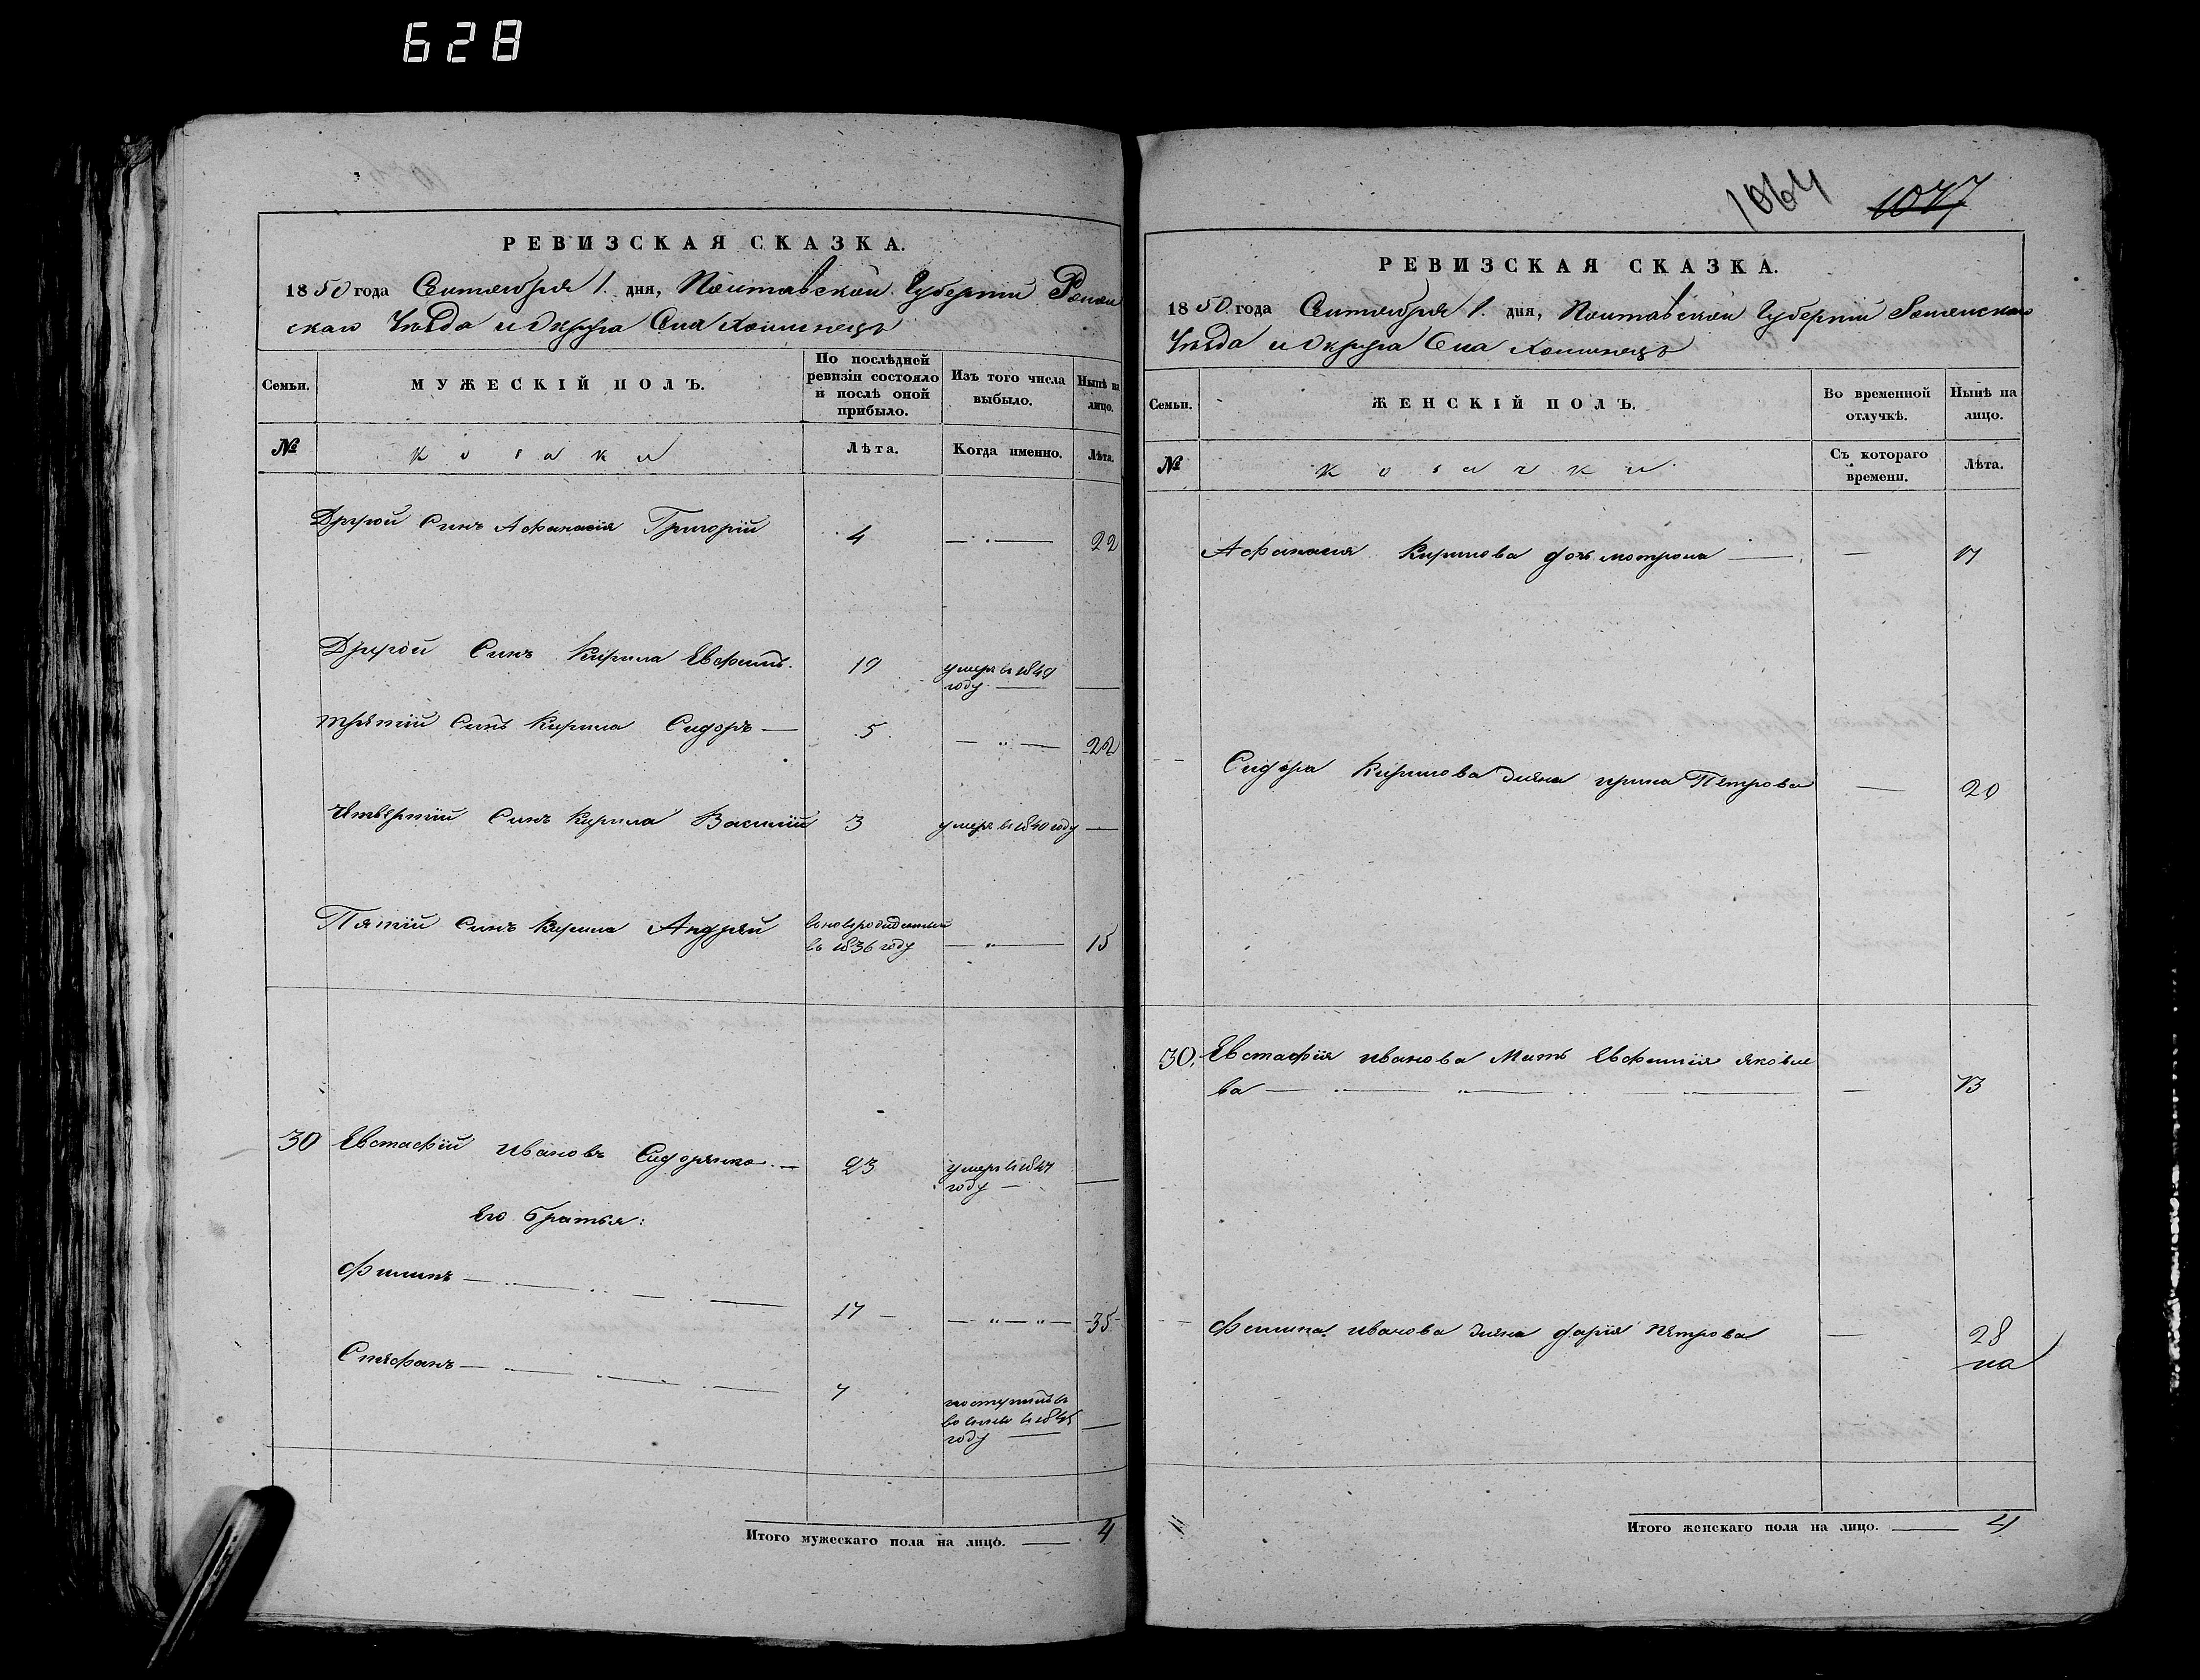 628
РЕВИЗСКАЯ СКАЗКА.
1850 года Сентября 1. дня, Полтавской Губернии Ромен
скаго Уѣзда и Округа Села
Семьи.
МУЖЕСКІЙ ПОЛЪ.
По послѣдней ревизіи состояло и послѣ оной прибыло.
Изъ того числа выбыло.
Нынѣ на лицо.
№
козаки
Лѣта.
Когда именно.
Лѣта.
Другой Синъ Афанасія Григорій 4 22
Другой Синъ Кирила Евфимъ. 19 умеръ въ 1849
году
третій Синъ Кирила Сидоръ 5 22
Четвертій Синъ Кирила Василій 3 умеръ въ 1840 году
Пятій Синъ Кирила Андрей
въ 1836 году 15
30 Евстафій Ивановъ Сидоренко 23 умеръ въ 1847
году
Его братья:
Филипъ 17 35
Стефанъ 7
году
Итого мужескаго пола на лицо. 4
1064 1077
РЕВИЗСКАЯ СКАЗКА.
1850 года Сентября 1. дня, Полтавской Губерніи Роменскаго
Уѣзда и Округа Села
Семьи.
ЖЕНСКІЙ ПОЛЪ.
Во временной отлучкѣ.
Нынѣ на лицо.
№
козачки
Съ котораго времени.
Лѣта.
Афанасія Кирилова дочь мотрона 17
Сидора Кирилова жена ирина Петрова 20
30. Евстафія иванова Мать Евфимія яковле
ва 73
Филипа иванова жена дарія петрова 28
Итого женскаго пола на лицо. 4